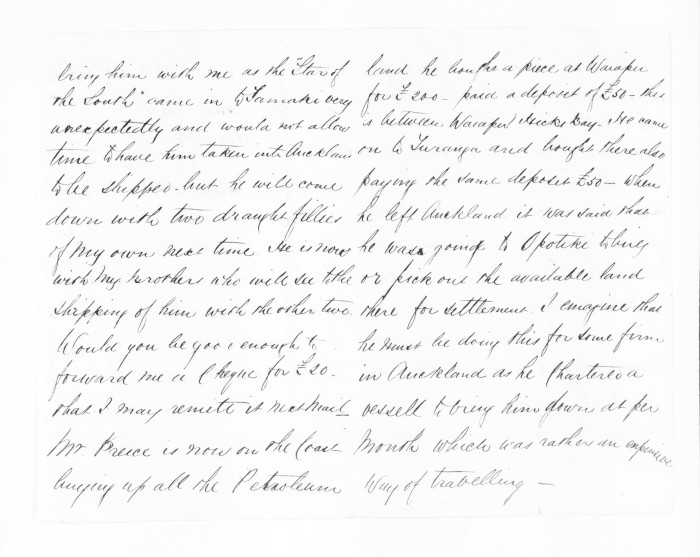 bring him with me as the "Star of
the South" came in to Tamaki very
unexpectedly and would not allow
time to have him taken into Auckland
to be shipped - but he will come
down with two draught fillies
of my own next time He is now
with my Brothers who will see to the
shipping of him with the other two.
Would you be good enough to
forward me a Cheque for £20 -
that I may remit it next mail
Mr. Preece is now on the Coast
buying up all the Petroleum
land he bought a piece at Waiapu
for £200 - paid a deposit of £50 - this
is between Waiapu & Hicks Bay - He came
on to Turanga and bought there also
paying the same deposit £50 - When
he left Auckland it was said that
he was going to Opotiki to buy
or pick out the available land
there for settlement. I emagine that
he must be doing this for some firm
in Auckland as he Chartered a
vessell to bring him down at per
Month which was rather an expensive
Way of travelling -